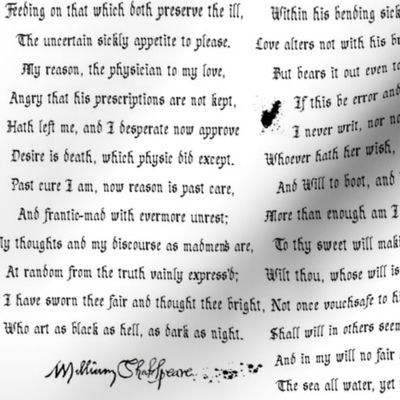 Feeding on that which doth preserve the ill,
The uncertain sickly appetite to please.
My reason, the physician to my love,
Angry that his prescriptions are not kept,
Hath left me, and I desperate now approve
Desire is death, which physic did except.
Past cure I am, now reason is past care,
And frantic-mad with evermore unrest;
My thoughts and my discourse as madmen's are,
At random from the truth vainly express'd;
I have sworn thee fair and thought thee bright,
Who art as black as hell, as dark as night.
William Shakspeare
Within his bending
Love alters not with his
But bears it out even
If this be error and
I never writ, nor
Whoever hath her wish,
And Will to boot, and
More than enough am I
To thy sweet will
Wilt thou, whose will is
Not once vouchsafe to
Shall will in others seem
And in my will no fair
The sea all water, yet